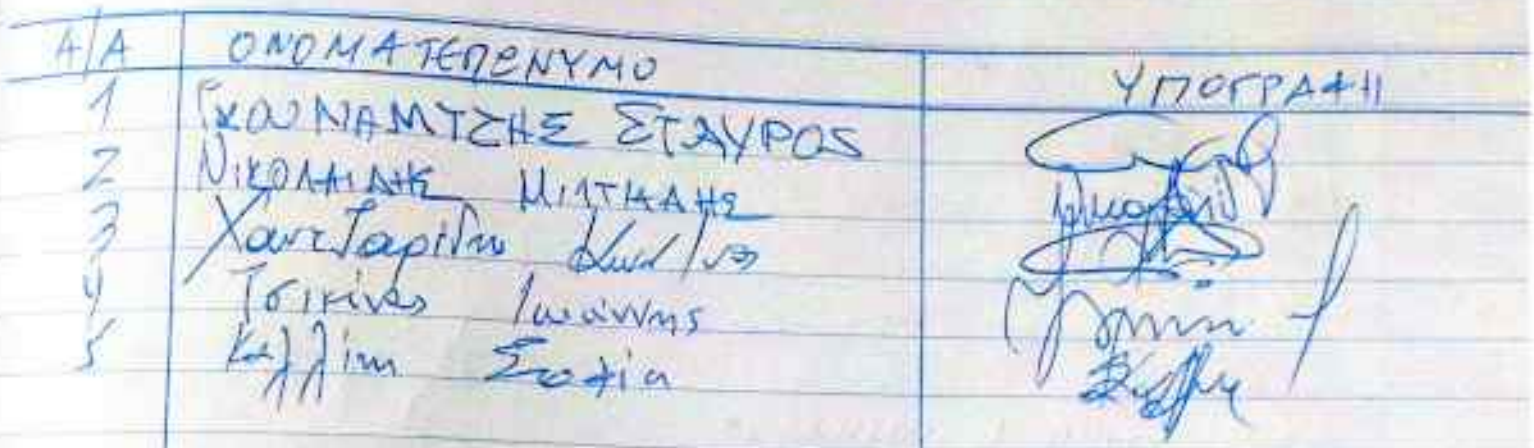 Α/Α ΟΝΟΜΑΤΕΠΩΝΥΜΟ ΥΠΟΓΡΑΦΗ
1 ΓΚΟΥΝΑΜΤΖΗΣ ΣΤΑΥΡΟΣ
2 ΝΙΚΟΛΑΙΔΗΣ ΜΙΛΤΙΑΔΗΣ
3 Κων/νος
4 Τσικίνας Ιωάννης
5 Καλλίνη Σοφία